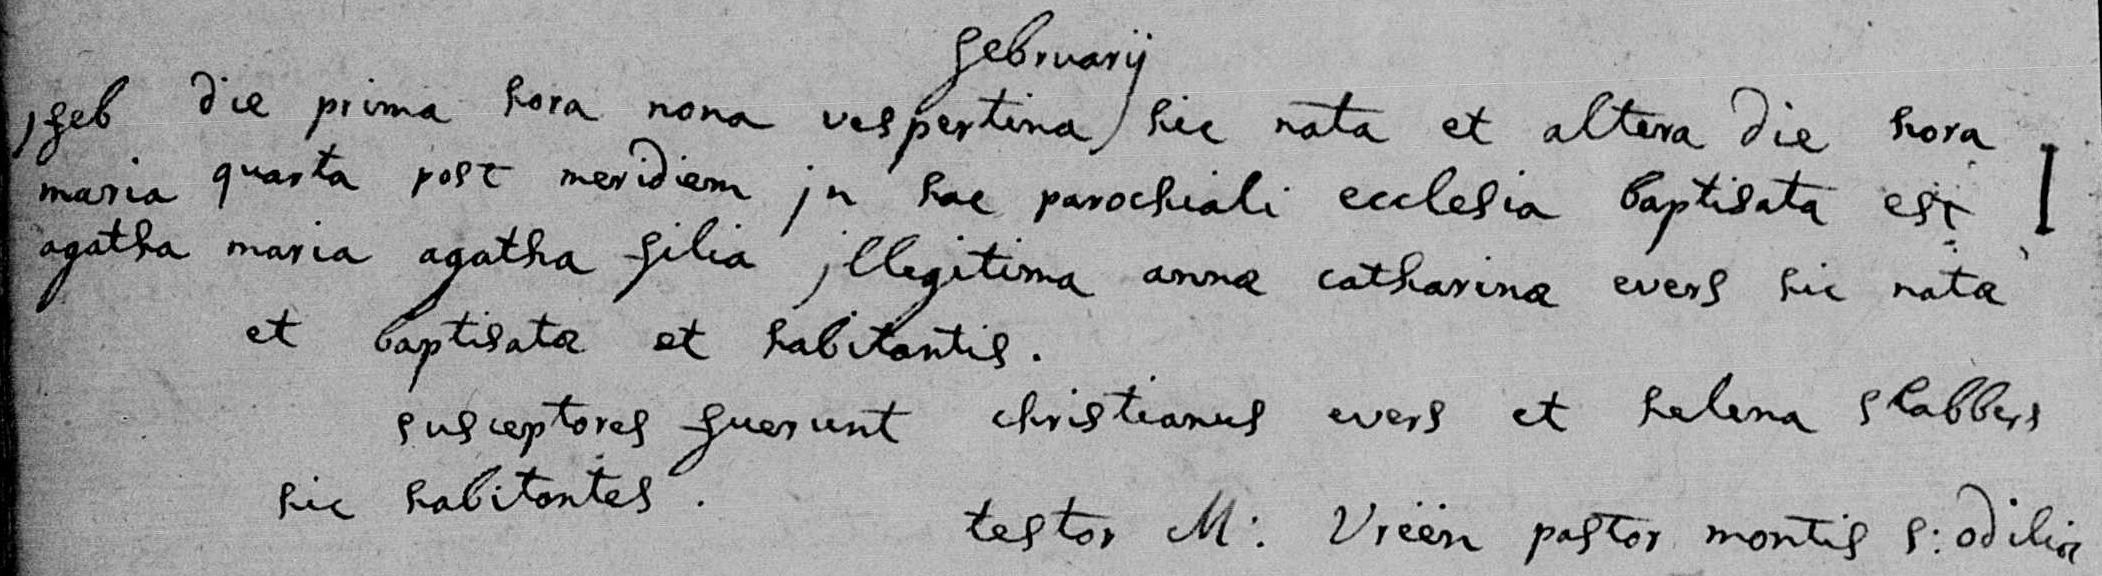 februarij
1 feb die prima hora nona vespertina hic nata et altera die hora
maria quarta post meridiem jn hac parochiali ecclesia baptisata est
agatha maria agatha filia jllegitima annæ catharinæ evers hic natæ
et baptisatæ et habitantis.
susceptores fuerunt christianus evers et helena slabbers
hic habitantes.
testor M: Vreën pastor montis s: odiliæ